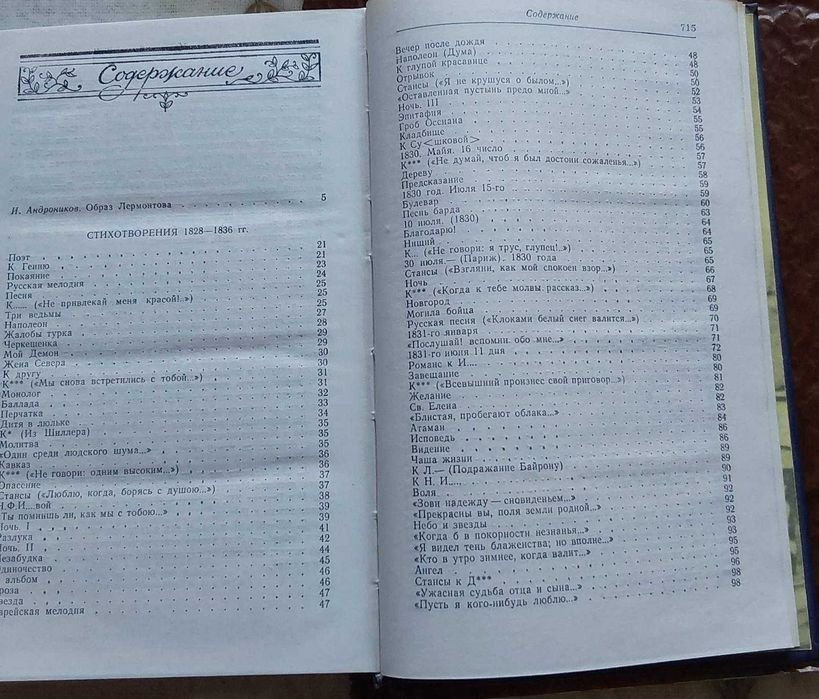 Содержание
И. Андроников. Образ Лермонтова 5
СТИХОТВОРЕНИЯ 1828—1836 гг.
Поэт 21
К Гению 21
Покаяние 23
Русская мелодия 24
Песня 25
К...... («Не привлекай меня красой!..») 25
Три ведьмы 25
Наполеон 27
Жалобы турка 28
Черкешенка 29
Мой Демон 29
Жена Севера 30
К другу 30
К*** («Мы снова встретились с тобой...») 31
Монолог 31
Баллада 32
Перчатка 33
Дитя в люльке 34
К* (Из Шиллера) 35
Молитва 35
«Один среди людского шума...» 35
Кавказ 36
К*** («Не говори: одним высоким...») 36
Опасение 37
Стансы («Люблю, когда, борясь с душою...») 37
Н.Ф.И....вой 38
«Ты помнишь ли, как мы с тобою...» 39
Ночь. I 39
Разлука 41
Ночь. II 42
Незабудка 44
Одиночество 45
альбом 46
роза 46
везда 47
врейская мелодия 47
Содержание 715
Вечер после дождя 48
Наполеон (Дума) 48
К глупой красавице 50
Отрывок 50
Стансы («Я не крушуся о былом...») 52
«Оставленная пустынь предо мной...» 53
Ночь. III 54
Эпитафия 55
Гроб Оссиана 55
Кладбище 56
К Су<шковой> 56
1830. Майя. 16 число 57
К*** («Не думай, чтоб я был достоин сожаленья...») 57
Дереву 58
Предсказание 59
1830 год. Июля 15-го 59
Булевар 60
Песнь барда 63
10 июля. (1830) 64
Благодарю! 64
Нищий 65
К... («Не говори: я трус, глупец!..») 65
30 июля.— (Париж). 1830 года 65
Стансы («Взгляни, как мой спокоен взор...») 66
Ночь 67
К*** («Когда к тебе молвы рассказ...») 68
Новгород 69
Могила бойца 69
Русская песня («Клоками белый снег валится...») 70
1831-го января 71
«Послушай! вспомни обо мне...» 71
1831-го июня 11 дня 72
Романс к И.... 80
Завещание 80
К*** («Всевышний произнес свой приговор...») 81
Желание 82
Св. Елена 82
«Блистая, пробегают облака...» 83
Атаман 84
Исповедь 86
Видение 86
Чаша жизни 89
К Л.— (Подражание Байрону) 89
К Н. И..... 90
Воля 91
«Зови надежду — сновиденьем...» 92
«Прекрасны вы, поля земли родной...» 92
Небо и звезды 92
«Когда б в покорности незнанья...» 93
«Я видел тень блаженства; но вполне...» 93
«Кто в утро зимнее, когда валит...» 95
Ангел 95
Стансы к Д*** 96
«Ужасная судьба отца и сына...» 98
«Пусть я кого-нибудь люблю...» 98